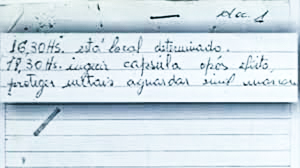 doc. 1
16,30 Hs. está local determinado.
18,30 Hs. ingerir capsula após efeito,
proteger metais aguardar sinal mascara